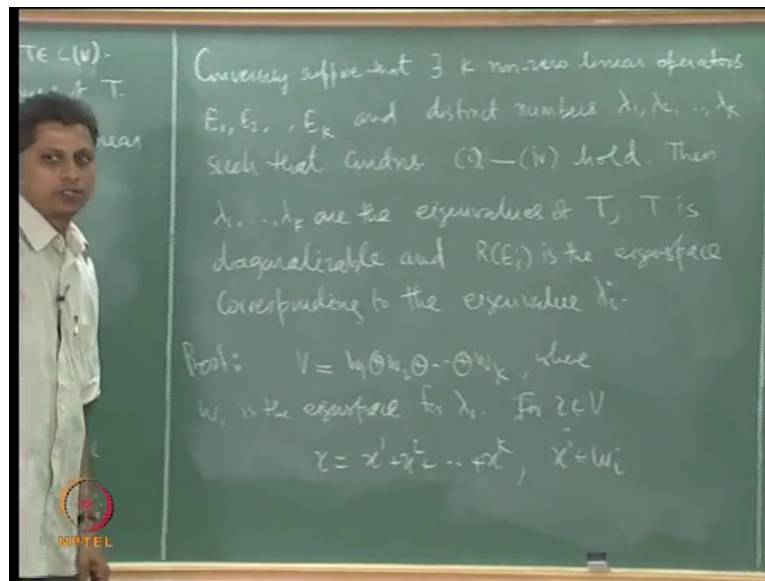 T ∈ L(V).
T.
near
Conversely suppose that ∃ k non-zero linear operators
E₁, E₂, , E_k and distinct numbers λ₁, λ₂, .., λ_k
such that condns (i) — (iv) hold. Then
λ₁, ..., λ_k are the eigenvalues of T, T is
diagonalizable and R(E_i) is the eigenspace
corresponding to the eigenvalue λ_i.
Proof: V = W₁ ⊕ W₂ ⊕ -- ⊕ W_k, where
W_i is the eigenspace for λ_i. For x ∈ V
x = x¹ + x² + -- + x^k, x^i ∈ W_i
NPTEL